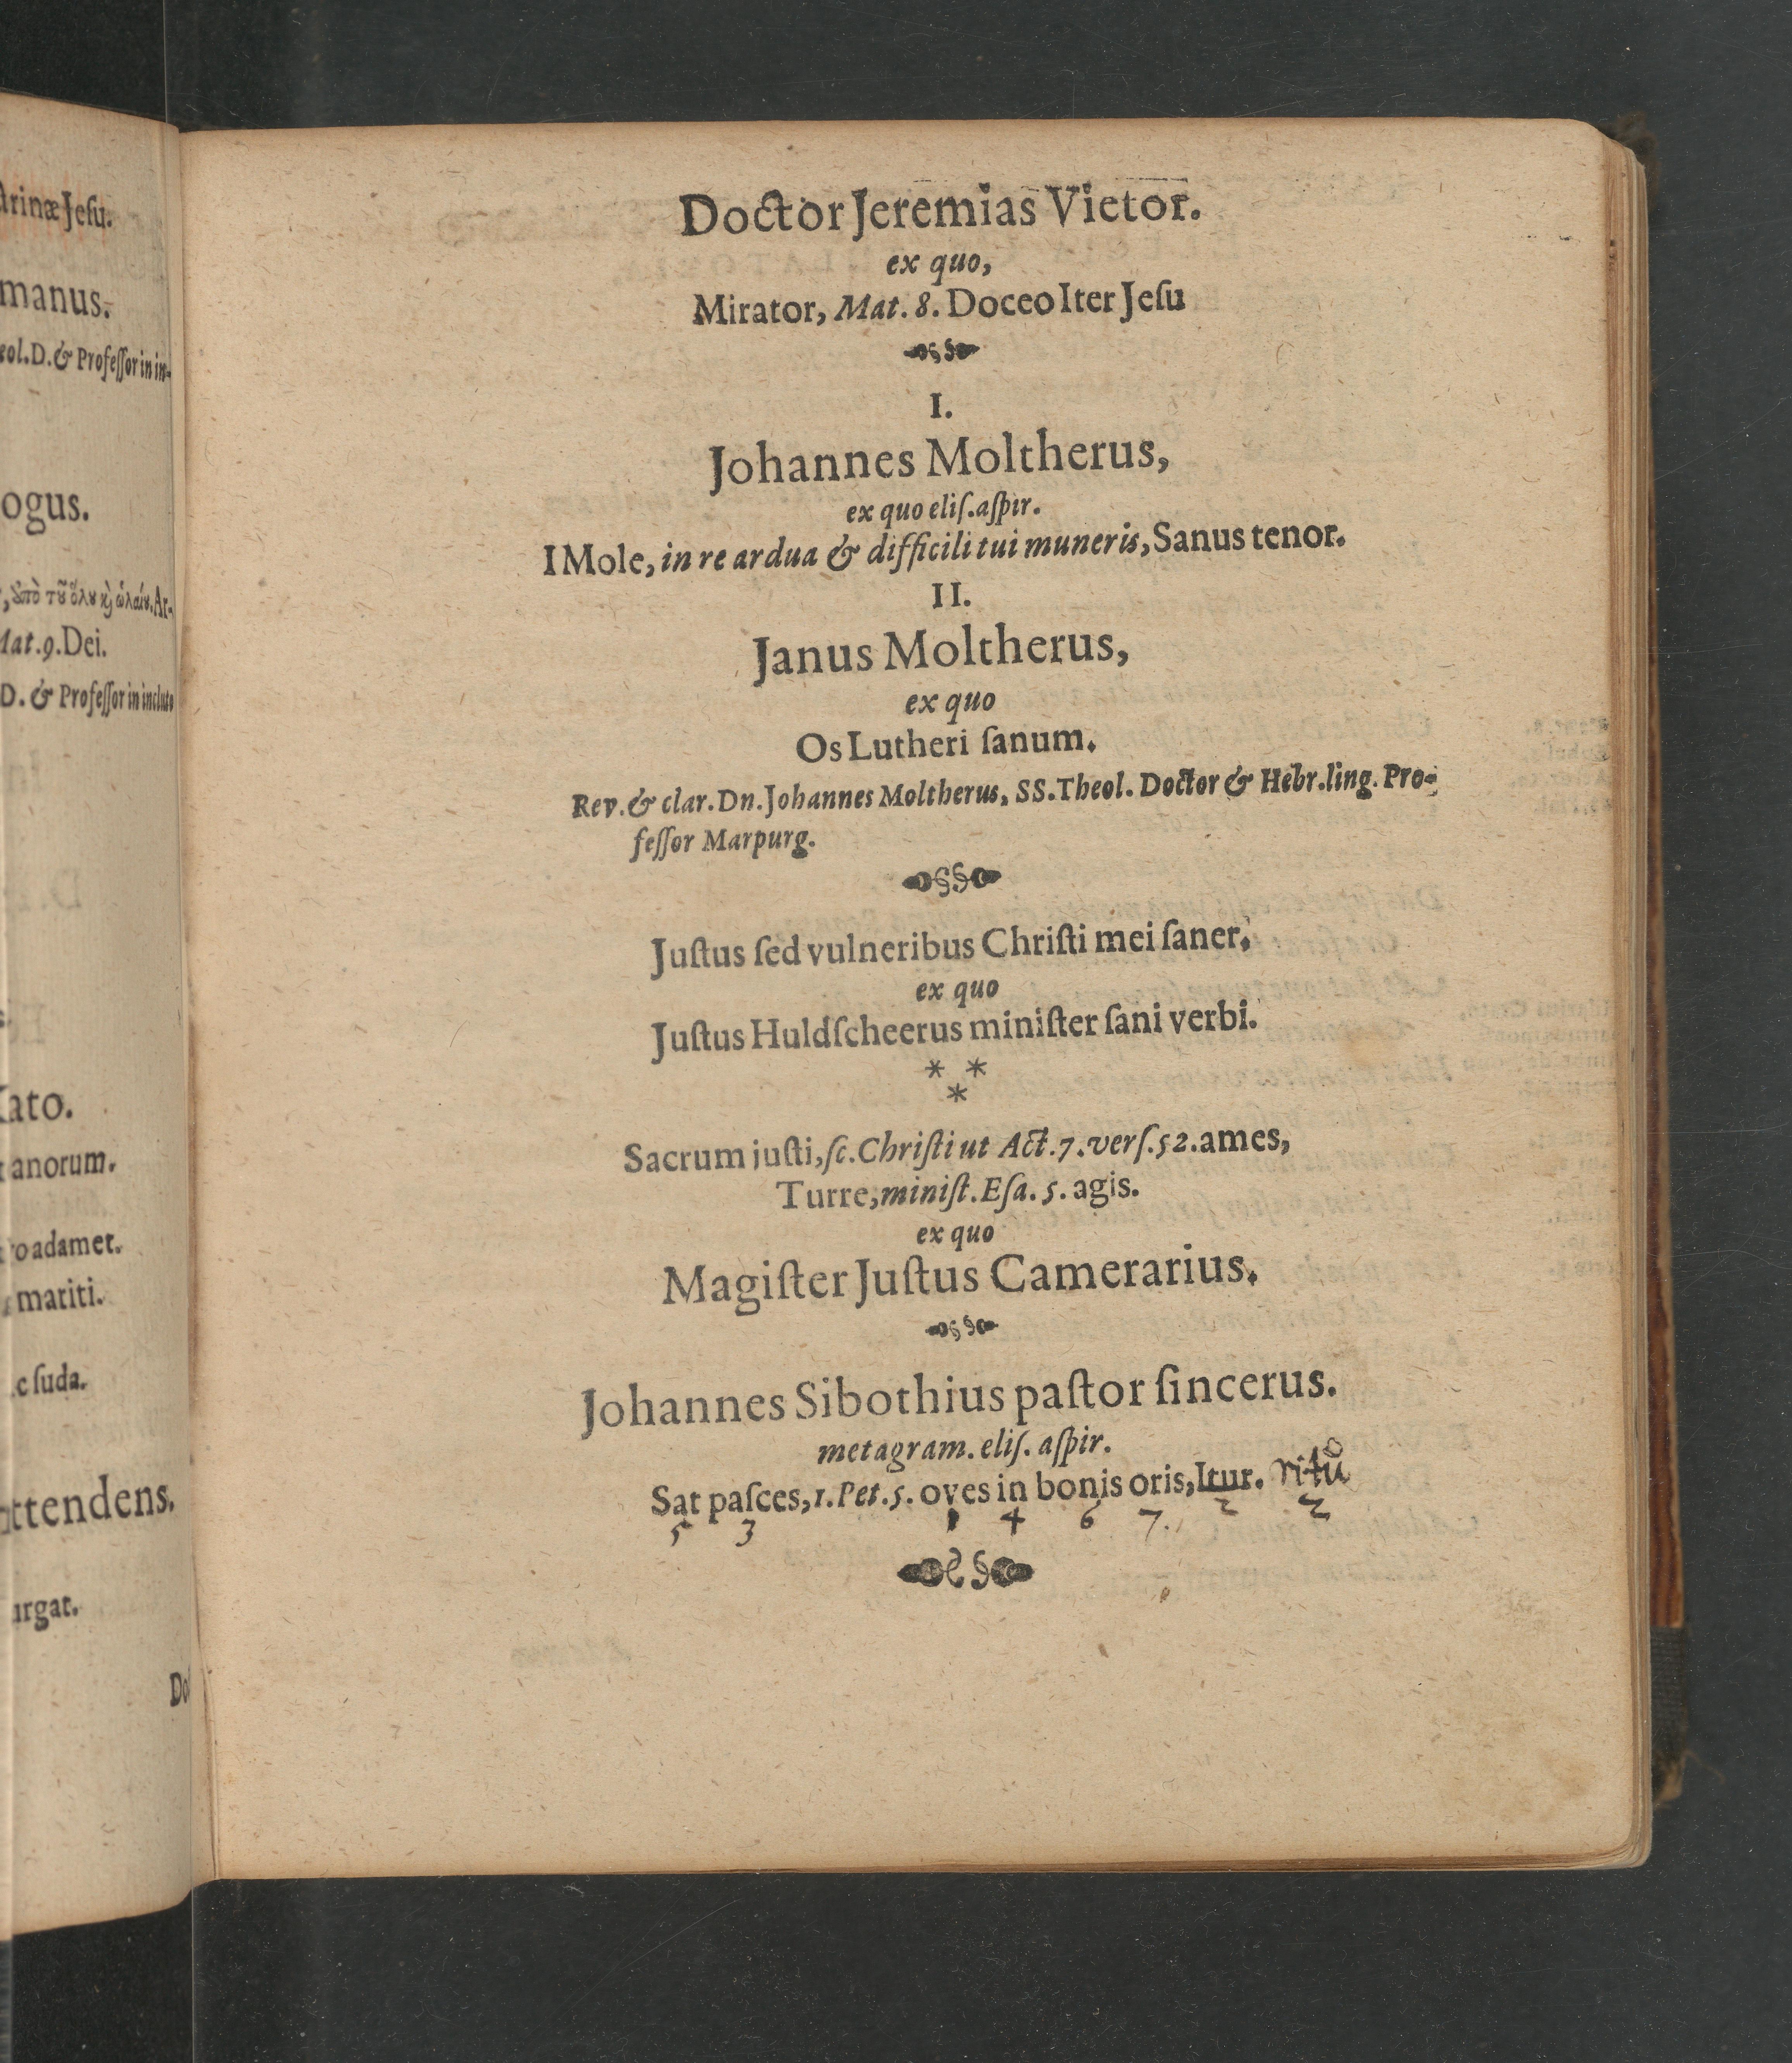 Doctor Jeremias Vietor.
ex quo,
Mirator, Mat. 8. Doceo Iter Jeſu
I.
Johannes Moltherus,
ex quo eliſ. aſpir.
I Mole, in re ardua & difficili tui muneris, Sanus tenor.
II.
Janus Moltherus,
ex quo
Os Lutheri ſanum.
Rev. & clar. Dn. Johannes Moltherus, SS. Theol. Doctor & Hebr. ling. Pro-
feſſor Marpurg.
Juſtus ſed vulneribus Chriſti mei ſaner,
ex quo
Juſtus Huldſcheerus miniſter ſani verbi.
* *
*
Sacrum juſti, ſc. Chriſti ut Act. 7. verſ. 52. ames,
Turre, miniſt. Eſa. 5. agis.
ex quo
Magiſter Juſtus Camerarius.
Johannes Sibothius paſtor ſincerus.
metagram. eliſ. aſpir.
Sat paſces, 1. Pet. 5. oves in bonis oris, Itur. ritu
5 3 1 4 6 7. 2 2
drinæ Jeſu.
manus.
eol. D. & Profeſſor in in-
ogus.
Mat. 9. Dei.
D. & Profeſſor in incluto
ato.
anorum.
ro adamet.
matiti.
c ſuda.
ttendens.
urgat.
Do